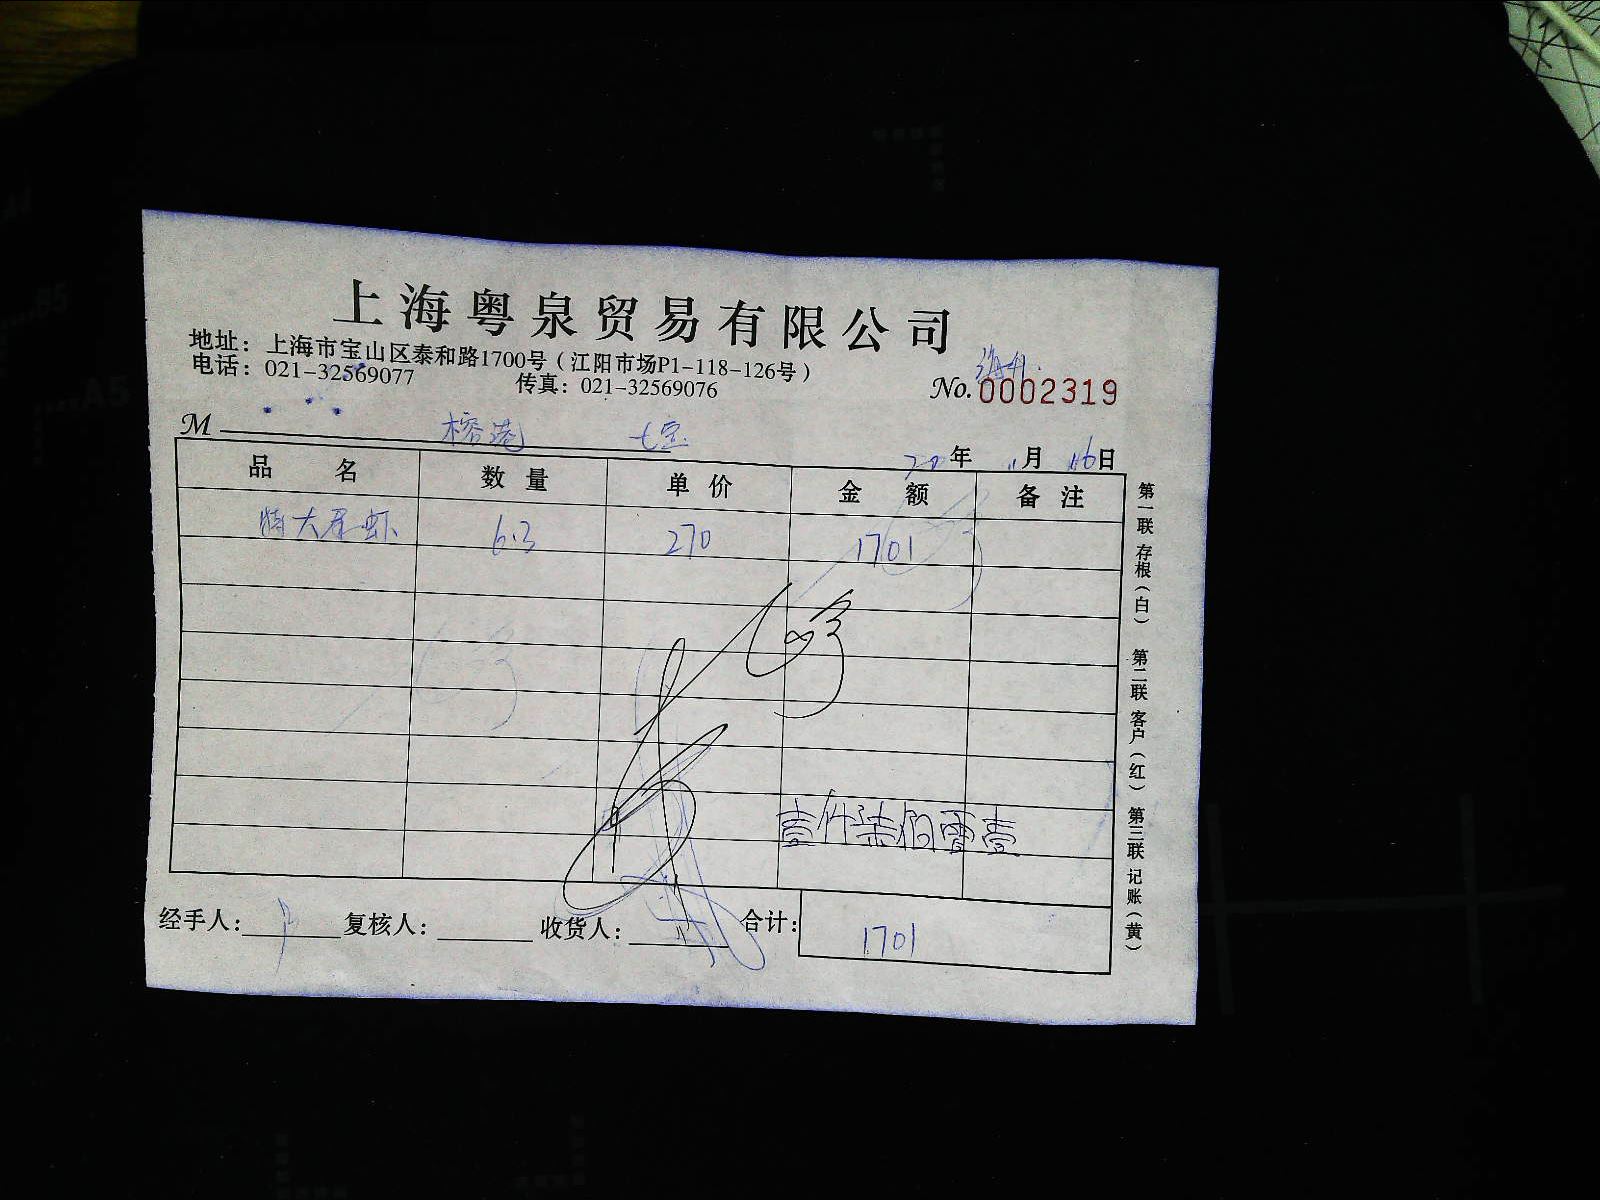 上海粤泉贸易有限公司
地址：上海市宝山区泰和路1700号（江阳市场P1-118-126号）
电话：021-32569077 传真：021-32569076
No.0002319
M 榕港 七宝
20年 11月 16日
品名 数量 单价 金额 备注
特大尾虾 6.3 270 1701
壹仟柒佰零壹
经手人： 复核人： 收货人： 合计：1701
第一联 存根（白） 第二联 客户（红） 第三联 记账（黄）